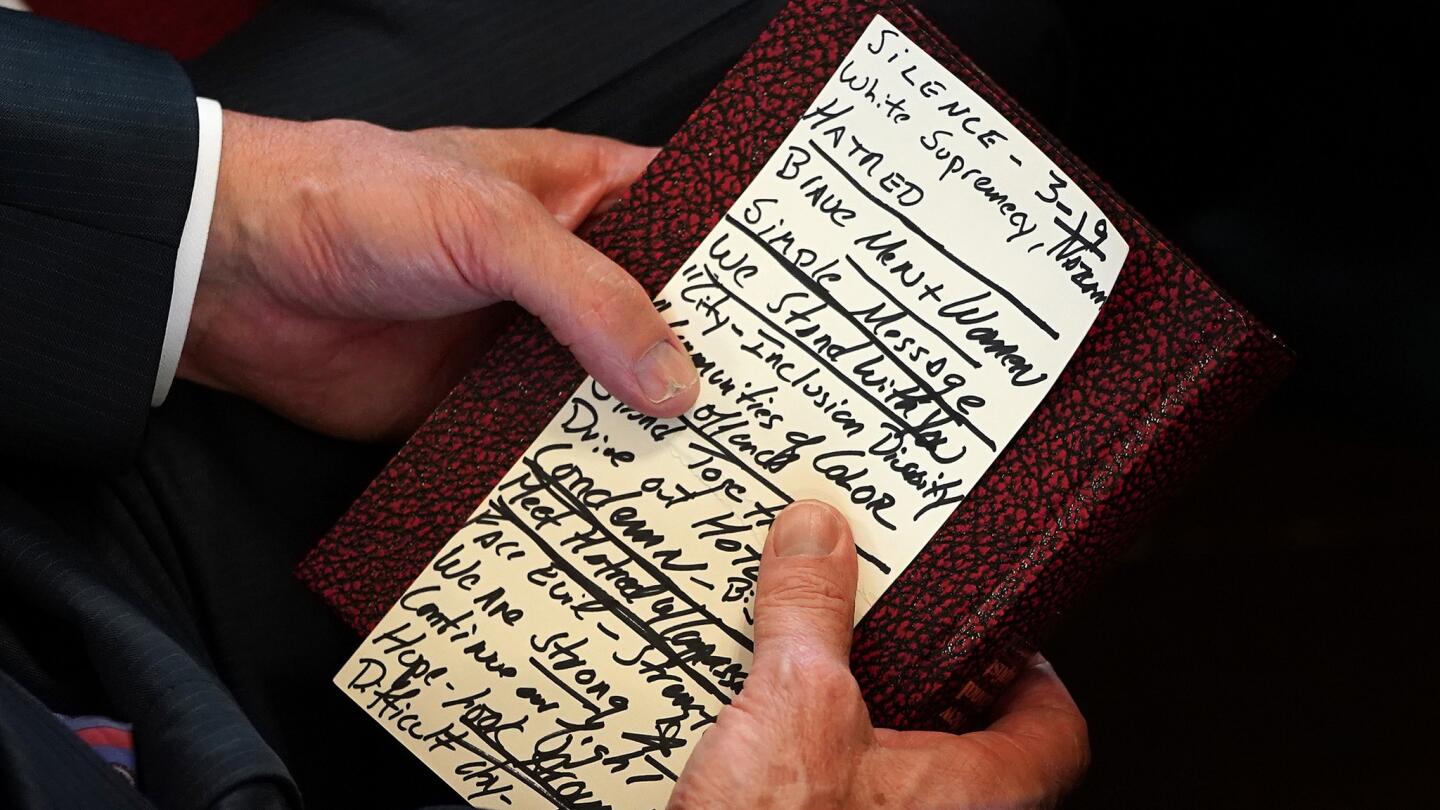 SILENCE - 3-19
White Supremacy,
HATRED
Brave Men + Women
Simple Message
We Stand With You
"City - Inclusion Diversity
Communities of Color
offends
Strong Toge
Drive out Hate
Condemn -
Meet Hatred w/ Compassi
Face Evil - Streng
We Are Strong
Continue our fight
Hope - Look
Difficult City -